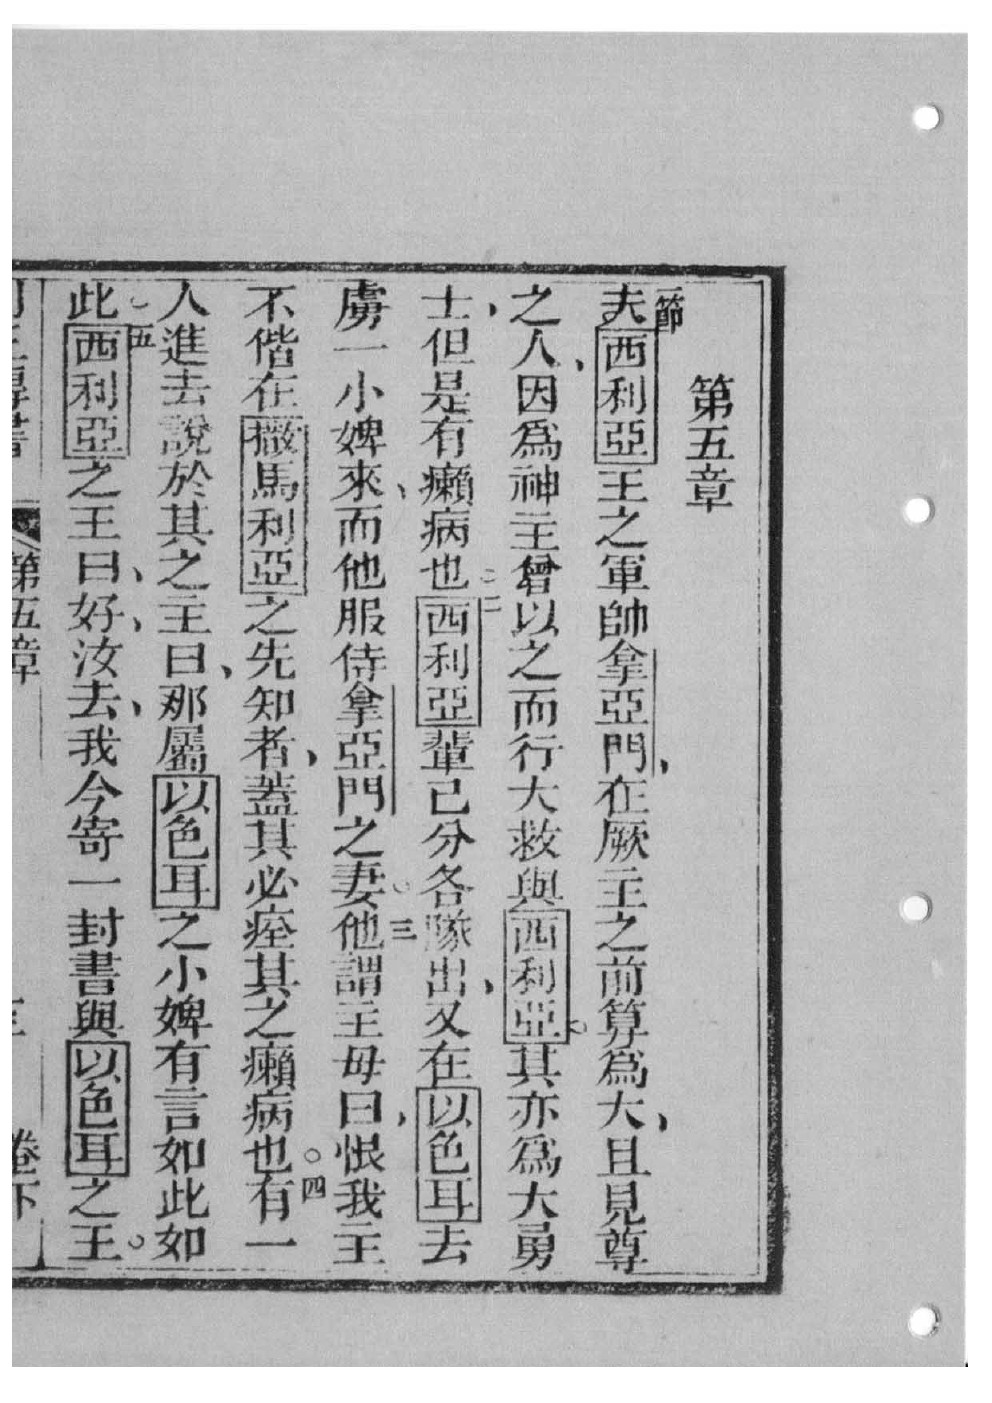 第五章
一節夫西利亞王之軍帥拿亞門、在厥主之前算爲大、且見尊
之人、因爲神主曾以之而行大救與西利亞。其亦爲大勇
士、但是有癩病也。二西利亞輩已分各隊出、又在以色耳去
虜一小婢來、而他服侍拿亞門之妻。三他謂主母曰、恨我主
不偕在撒馬利亞之先知者、蓋其必痊其之癩病也。四有一
人進去說於其之主曰、那屬以色耳之小婢有言如此如
此。五西利亞之王曰、好、汝去、我今寄一封書與以色耳之王。
第五章 卷下